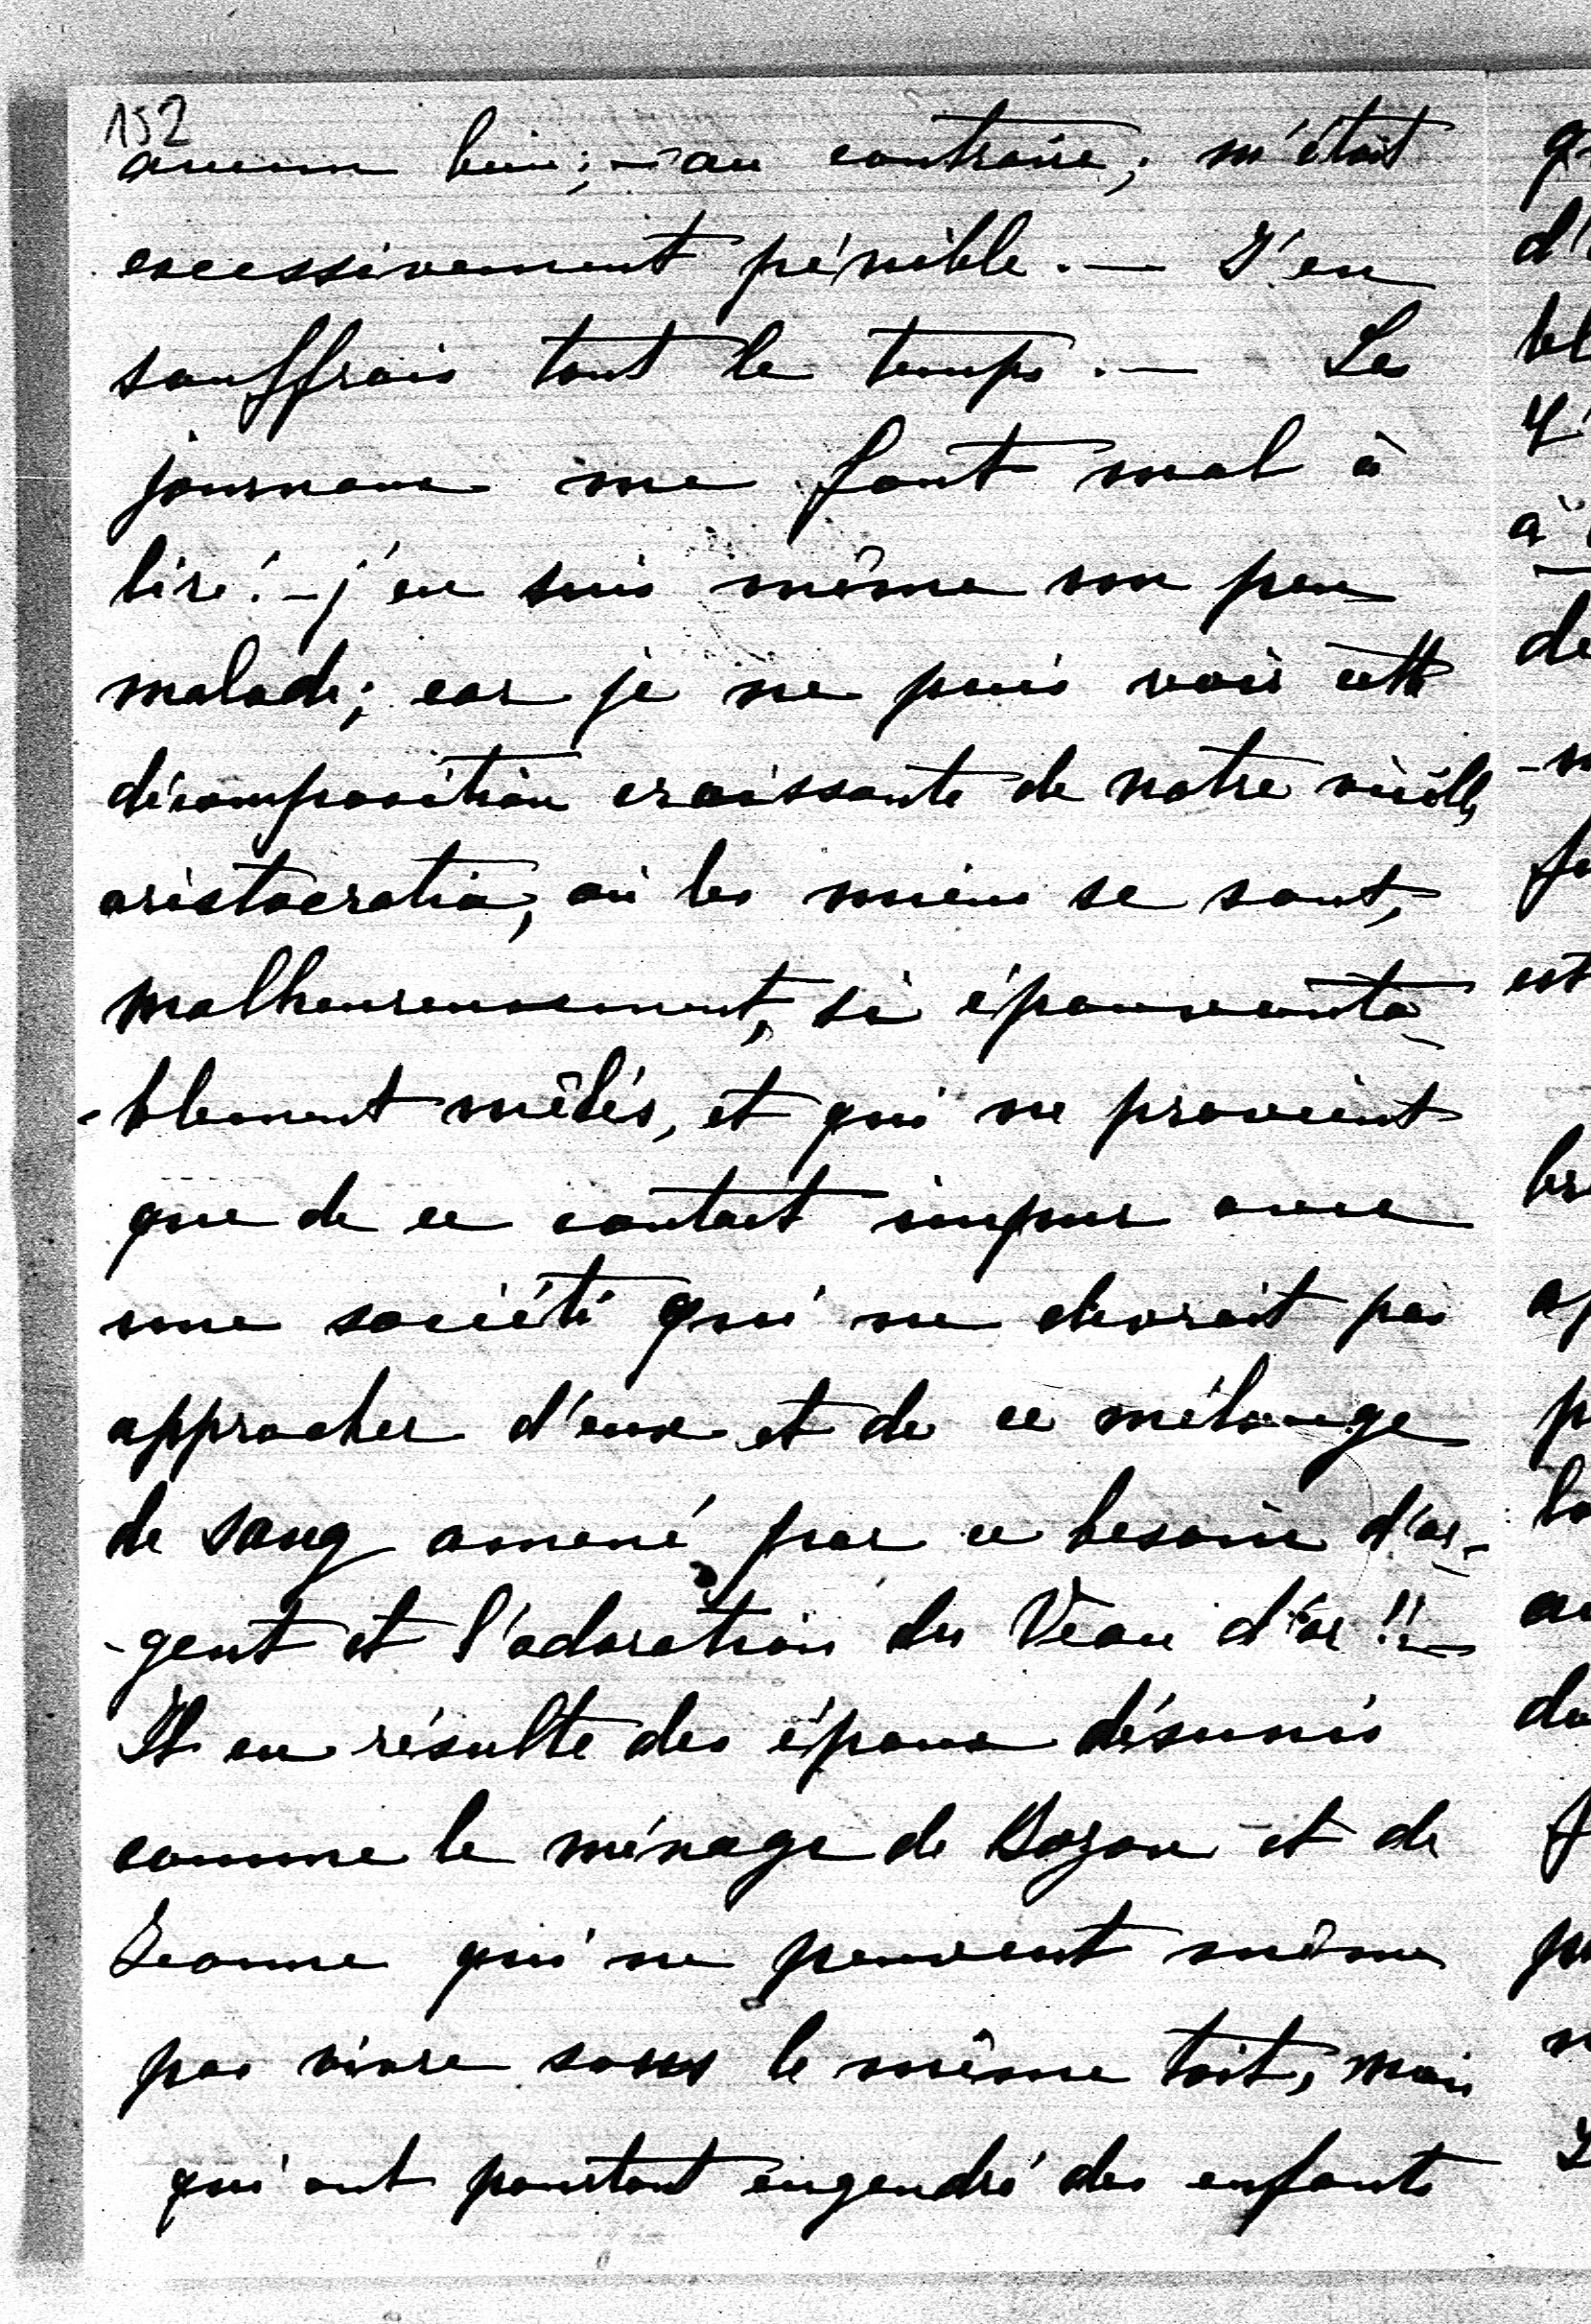 152
aucun bien; – au contraire, m'était
excessivement pénible. — J'en
souffrais tout le temps. — Les
journaux me font mal à
lire! – j'en suis même un peu
malade; car je ne puis voir cette
décomposition croissante de notre vieille
aristocratie, où les miens se sont,
malheureusement, si épouventa-
-blement mêlés, et qui ne provient
que de ce contact impur avec
une société qui ne devrait pas
approcher d'eux et de ce mélange
de sang amené par ce besoin d'ar-
-gent et l'adoration du Veau d'or!! —
Il en résulte des époux désunis
comme le ménage de Bozon et de
Jeanne qui ne peuvent même
pas vivre sous le même toit, mais
qui ont pourtant engendré des enfants